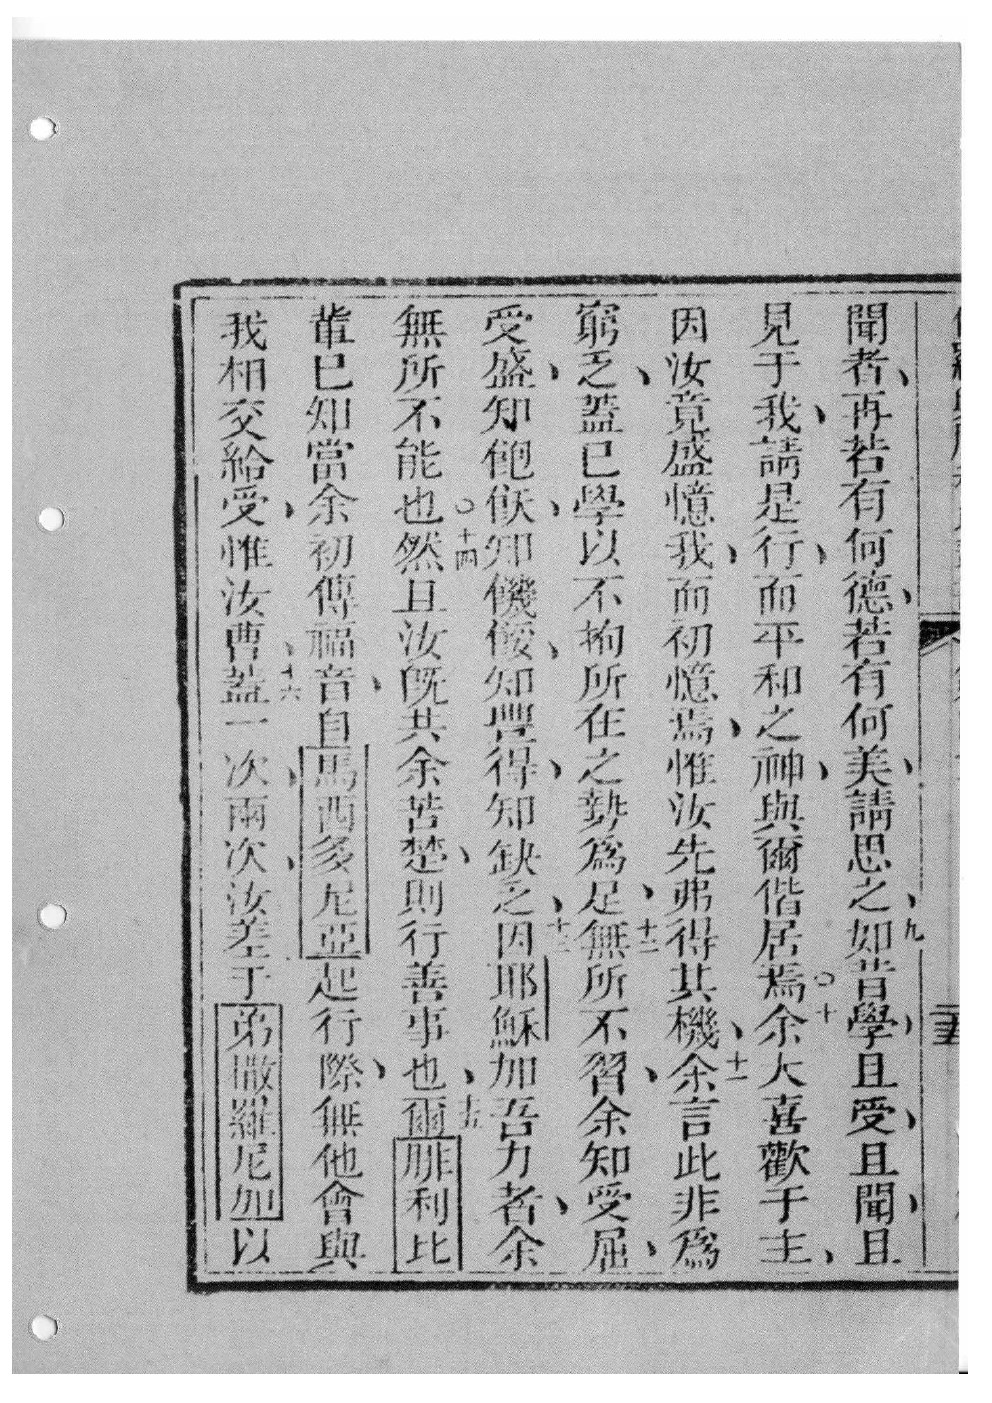 聞者、再若有何德、若有何美、請思之、九如昔學、且受、且聞、且
見于我、請是行、而平和之神、與爾偕居焉。十余大喜歡于主、
因汝竟盛憶我、而初憶焉、惟汝先弗得其機、十一余言此非爲
窮乏、蓋已學以不拘所在之勢爲足、十二無所不習、余知受屈、
受盛、知飽飫、知饑餒、知豐得、知缺之、十三因耶穌加吾力者、余
無所不能也。十四然且汝旣共余苦楚、則行善事也、十五爾腓利比
輩已知當余初傳福音、自馬西多尼亞起行際、無他會與
我相交給受、惟汝曹、十六蓋一次、兩次、汝差于弟撒羅尼加以